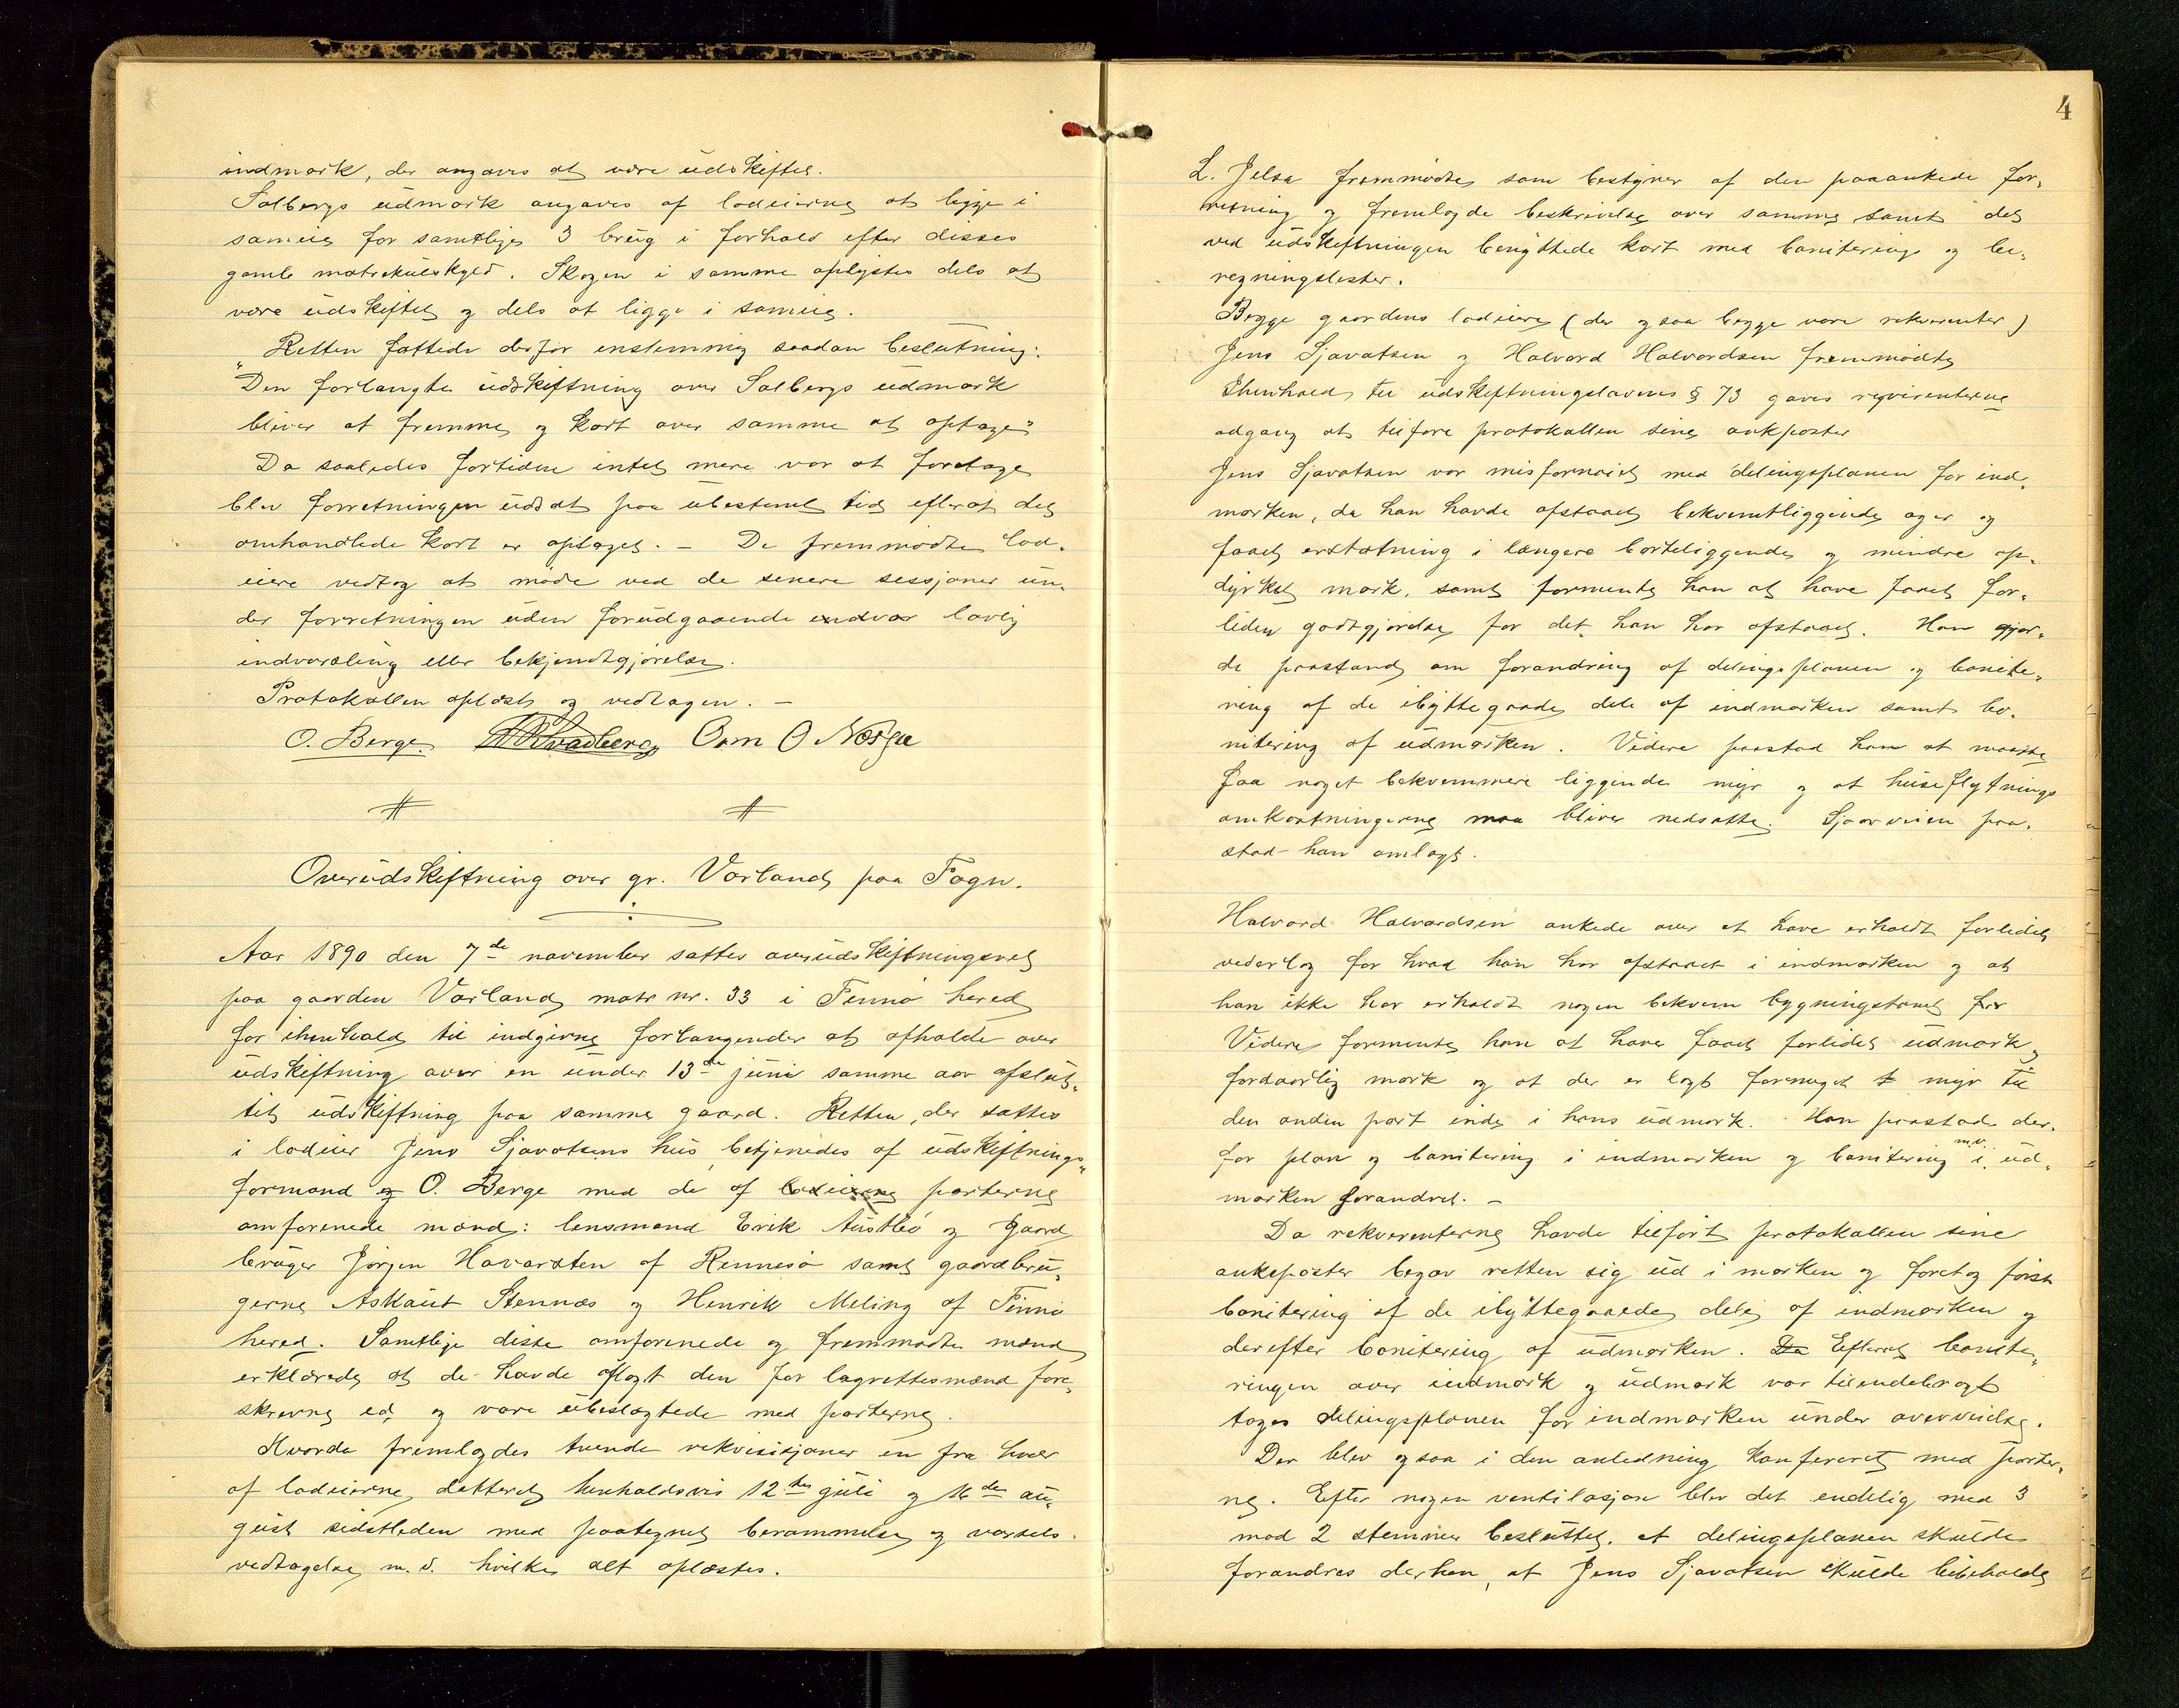 indmark, der angaves at være udskiftet.
Solbergs udmark angaves af lodeierne at ligge i
sameie for samtlige 3 brug i forhold efter disses
gamle matrikulskyld. Skogen i samme oplystes dels at
være udskiftet og dels at ligge i sameie.
Retten fattede derfor enstemmig saadan beslutning:
"Den forlangte udskiftning over Solbergs udmark
bliver at fremme og kart over samme at optage"
Da saaledes fortiden intet mere var at foretage
blev forretningen udsat paa ubestemt tid efterat det
omhandlede kart er optaget. – De fremmødte lod-
eiere vedtog at møde ved de senere sessjoner un-
der forretningen uden forudgaaende lovlig
indvarsling eller bekjendtgjørelse.
Protokollen oplæst og vedtagen. –
O. Berge Orm O Nærga
Overudskiftning over gr. Varland paa Fogn.
Aar 1890 den 7de november sattes overudskiftningsret
paa gaarden Varland matr nr. 33 i Finnø hered
for ihenhold til indgivne forlangender at afholde over
udskiftning over en under 13de juni samme aar afslut-
tet udskiftning paa samme gaard. Retten, der sattes
i lodeier Jens Sjavatsens hus, betjenedes af udskiftnings-
formand og O. Berge med de af lodeierne parterne
omforenede mænd: lensmand Erik Austbø og gaard
bruger Jørgen Havarsten af Rennesø samt gaardbru-
gerne Askaut Stennæs og Henrik Meling af Finnø
hered. Samtlige disse omforenede og fremmødte mænd
erklærede at de havde aflagt den for lagrettesmænd fore-
skrevne ed, og være ubeslægtede med parterne.
Hvorda fremlagdes tvende rekvisisjoner en fra hver
af lodeierne, datteret henholdsvis 12te juli og 16de au-
gust sidstleden med paategnet berammelse og varsels
vedtagelse m. v. hvilke alt oplæstes.
4
L. Jelsa fremmødte som bestyrer af den paaankede for-
retning og fremlagde beskrivelse over samme samt det
ved udskiftningen benyttede kart med boniterings og be-
regningslister.
Begge gaardens lodeiere (der ogsaa begge vare rekverenter)
Jens Sjavatsen og Halvard Halvardsen fremmødte
Ihenhold til udskiftningslovens § 73 gaves reqvirenterne
adgang at tilføre protokollen sine ankposter
Jens Sjavatsen var misfornøiet med delingsplanen for ind-
marken, da han havde afstaaet bekvemtliggende ager og
faaet erstatning i længere borteliggende og mindre op-
dyrket mark, samt formente han at have faaet for-
liden godtgjørelse for det han har afstaaet. Han gjor-
de paastand om forandring af delingsplanen og bonite-
ring af de ibyttegaaede dele af indmarken samt bo-
nitering af udmarken. Videre paastod han at maatte
faa noget bekvemmere liggende myr og at huseflytnings
omkostningerne maa bliver nedsatte. Sjøarveien paa-
stod han omlagt.
Halvard Halvardsen ankede over at have erholdt forlidet
vederlag for hvad han har afstaaet i indmarken og at
han ikke har erholdt nogen bekvem bygningstomt før
Videre formente han at have faaet forlidet udmark,
fordaarlig mark og at der er lagt formeget t myr til
den anden part inde i hans udmark. Han paastod der-
for plan og bonitering i indmarken og bonitering m.v. i ud-
marken forandret. –
Da rekverenterne havde tilført protokollen sine
ankeposter begav retten sig ud i marken og foretog først
bonitering af de ibyttegaaede dele af indmarken og
derefter bonitering af udmarken. Da Efterat bonite-
ringen over indmark og udmark var tilendebragt
toges delingsplanen for indmarken under overveielse.
Der blev ogsaa i den anledning konfereret med parter-
ne. Efter nogen ventilasjon blev det endelig med 3
mod 2 stemmer besluttet, at delingsplanen skulde
forandres derhen, at Jens Sjavatsen skulde bibeholde